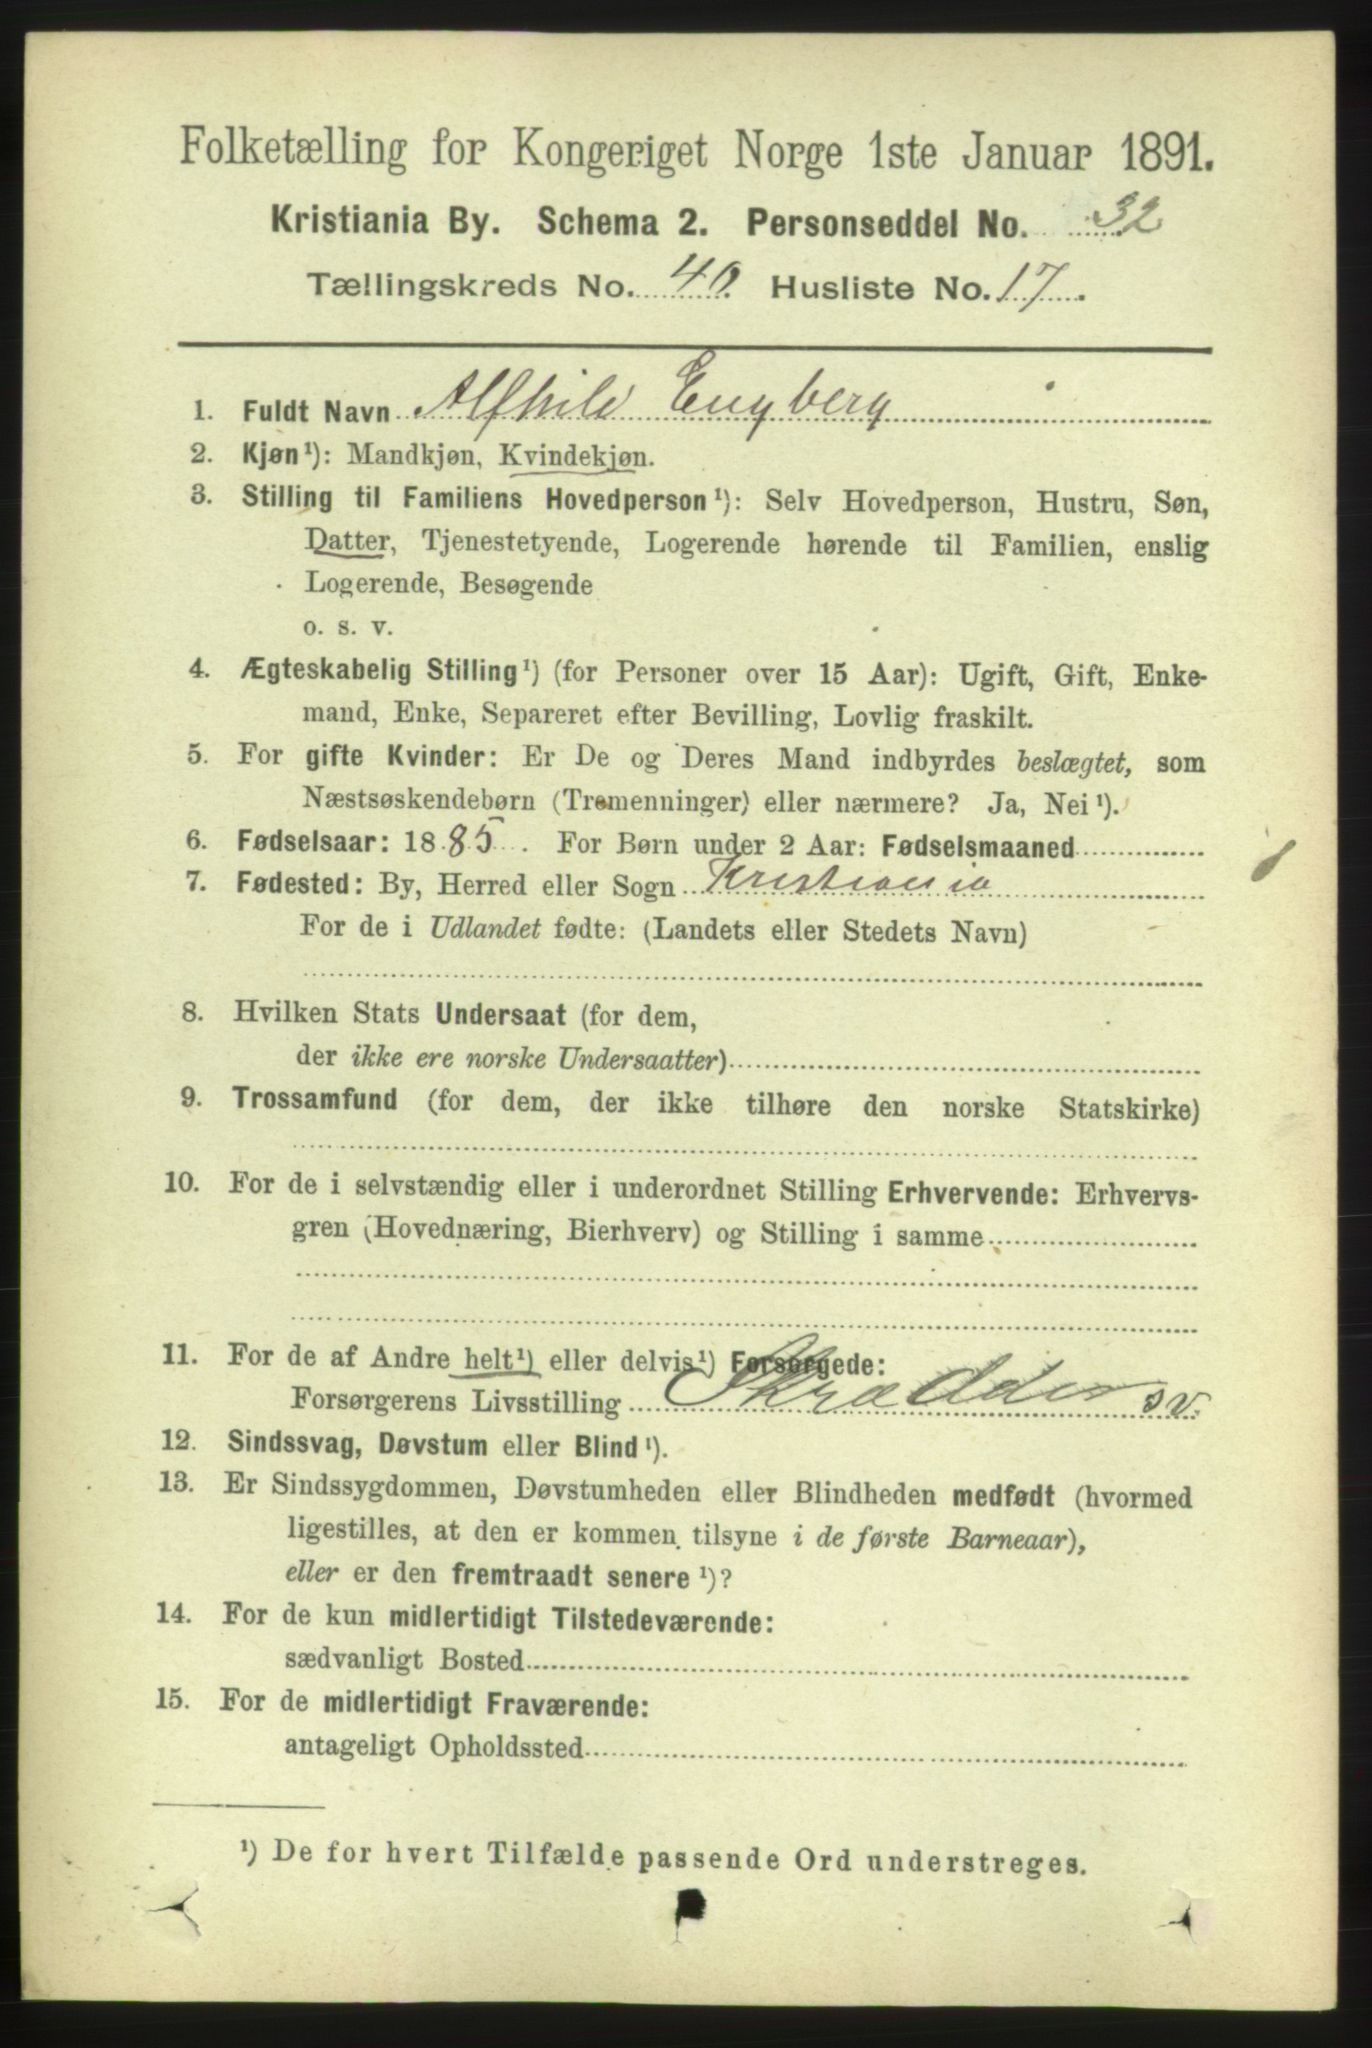 Folketælling for Kongeriget Norge 1ste Januar 1891.
Kristiania By. Schema 2. Personseddel No. 32
Tællingskreds No. 40. Husliste No. 17.
1. Fuldt Navn Alfhild Engberg
2. Kjøn¹): Mandkjøn, Kvindekjøn.
3. Stilling til Familiens Hovedperson¹): Selv Hovedperson, Hustru, Søn,
Datter, Tjenestetyende, Logerende hørende til Familien, enslig
Logerende, Besøgende
o. s. v.
4. Ægteskabelig Stilling¹) (for Personer over 15 Aar): Ugift, Gift, Enke-
mand, Enke, Separeret efter Bevilling, Lovlig fraskilt.
5. For gifte Kvinder: Er De og Deres Mand indbyrdes beslægtet, som
Næstsøskendebørn (Tremenninger) eller nærmere? Ja, Nei¹).
6. Fødselsaar: 1885. For Børn under 2 Aar: Fødselsmaaned
7. Fødested: By, Herred eller Sogn Kristiania
For de i Udlandet fødte: (Landets eller Stedets Navn)
8. Hvilken Stats Undersaat (for dem,
der ikke ere norske Undersaatter)
9. Trossamfund (for dem, der ikke tilhøre den norske Statskirke)
10. For de i selvstændig eller i underordnet Stilling Erhvervende: Erhvervs-
gren (Hovednæring, Bierhverv) og Stilling i samme
11. For de af Andre helt¹) eller delvis¹) Forsørgede:
Forsørgerens Livsstilling Skrædder sv.
12. Sindssvag, Døvstum eller Blind¹).
13. Er Sindssygdommen, Døvstumheden eller Blindheden medfødt (hvormed
ligestilles, at den er kommen tilsyne i de første Barneaar),
eller er den fremtraadt senere¹)?
14. For de kun midlertidigt Tilstedeværende:
sædvanligt Bosted
15. For de midlertidigt Fraværende:
antageligt Opholdssted
¹) De for hvert Tilfælde passende Ord understreges.